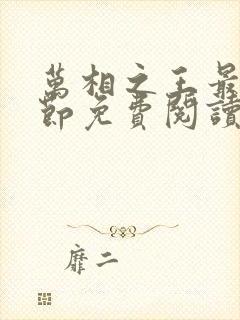 萬相之王最
節免費閱讀
靡二